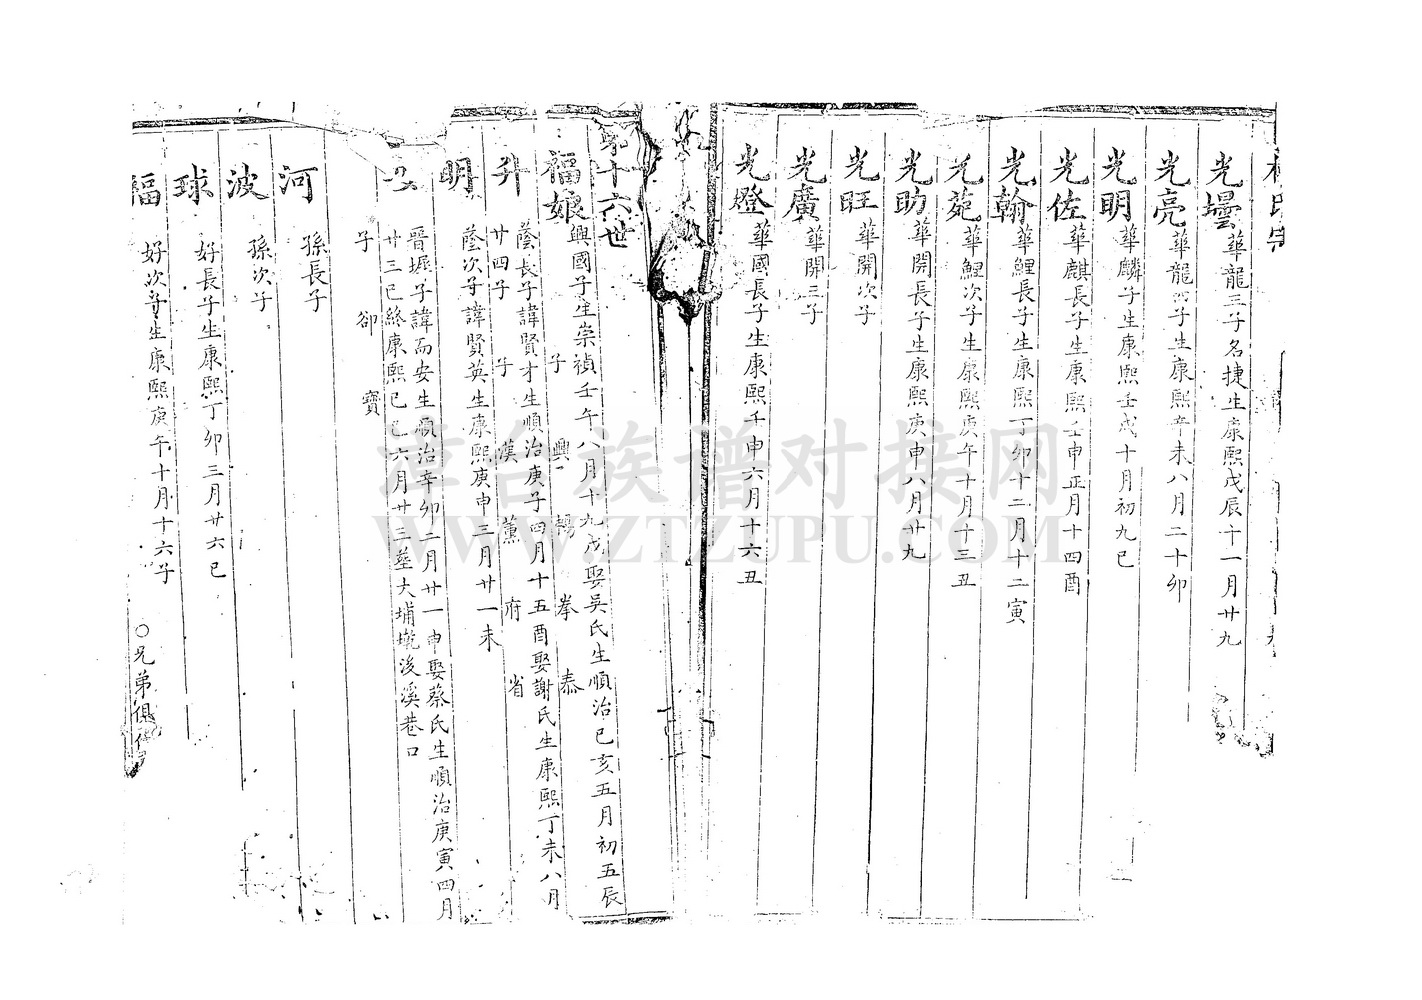 光壜 華龍三子名捷生康熙戊辰十一月廿九
光亮 華龍 子生康熙辛未八月二十卯
光明 華麟子生康熙壬戌十月初九巳
光佐 華麒長子生康熙壬申正月十四酉
光翰 華鯉長子生康熙丁卯十二月十二寅
光菀 華鯉次子生康熙庚午十月十三丑
光助 華開長子生康熙庚申八月廿九
光旺 華開次子
光廣 華開三子
光燈 華國長子生康熙壬申六月十六丑
第十六世
福娘 興國子生崇禎壬午八月十九戌娶吳氏生順治己亥五月初五辰
子 興 拳 泰
升 蔭長子諱賢才生順治庚子四月十五酉娶謝氏生康熙丁未八月
廿四子 子 漢 薰 府 省
明 蔭次子諱賢英生康熙庚申三月廿一未
晋 子諱而安生順治辛卯二月廿一申娶蔡氏生順治庚寅四月
廿三巳終康熙己巳六月廿三葬大埔壠後溪巷口
子 卻 寶
河 孫長子
波 孫次子
球 好長子生康熙丁卯三月廿六巳
福 好次子生康熙庚午十月十六子
○兄弟俱
漳台族谱对接网
WWW.ZTZUPU.COM